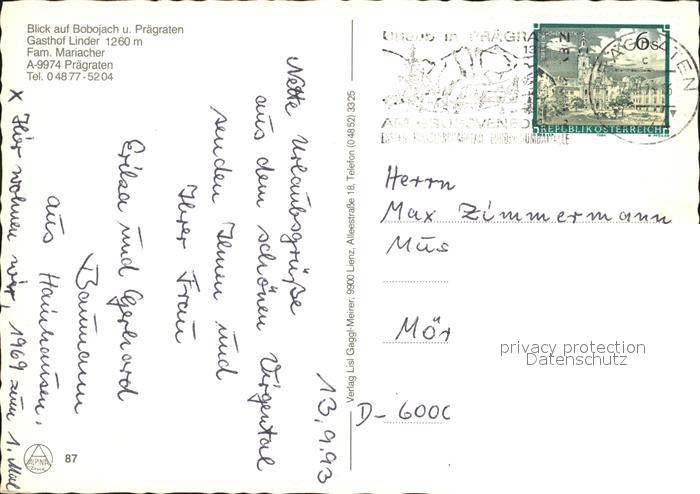 Blick auf Bobojach u. Prägraten
Gasthof Linder 1260 m
Fam. Mariacher
A-9974 Prägraten
Tel. 0 48 77 - 52 04
13.9.93
Nette Urlaubsgrüße
aus dem schönen Virgental
senden Ihnen und
Ihrer Frau
Erika und Gerhard
Baumann
aus Hainhausen.
x Hier wohnen wir, 1969 zum 1. Mal
ALPINA
87
Verlag Lisl Gaggl-Meirer, 9900 Lienz, Alleestraße 18, Telefon (0 48 52) 33 25
Urlaub in PRÄGRA
AM GROSSVENED
6
REPUBLIK ÖSTERREICH
Herrn
Max Zimmermann
Mus
Mör
D- 6000
privacy protection
Datenschutz